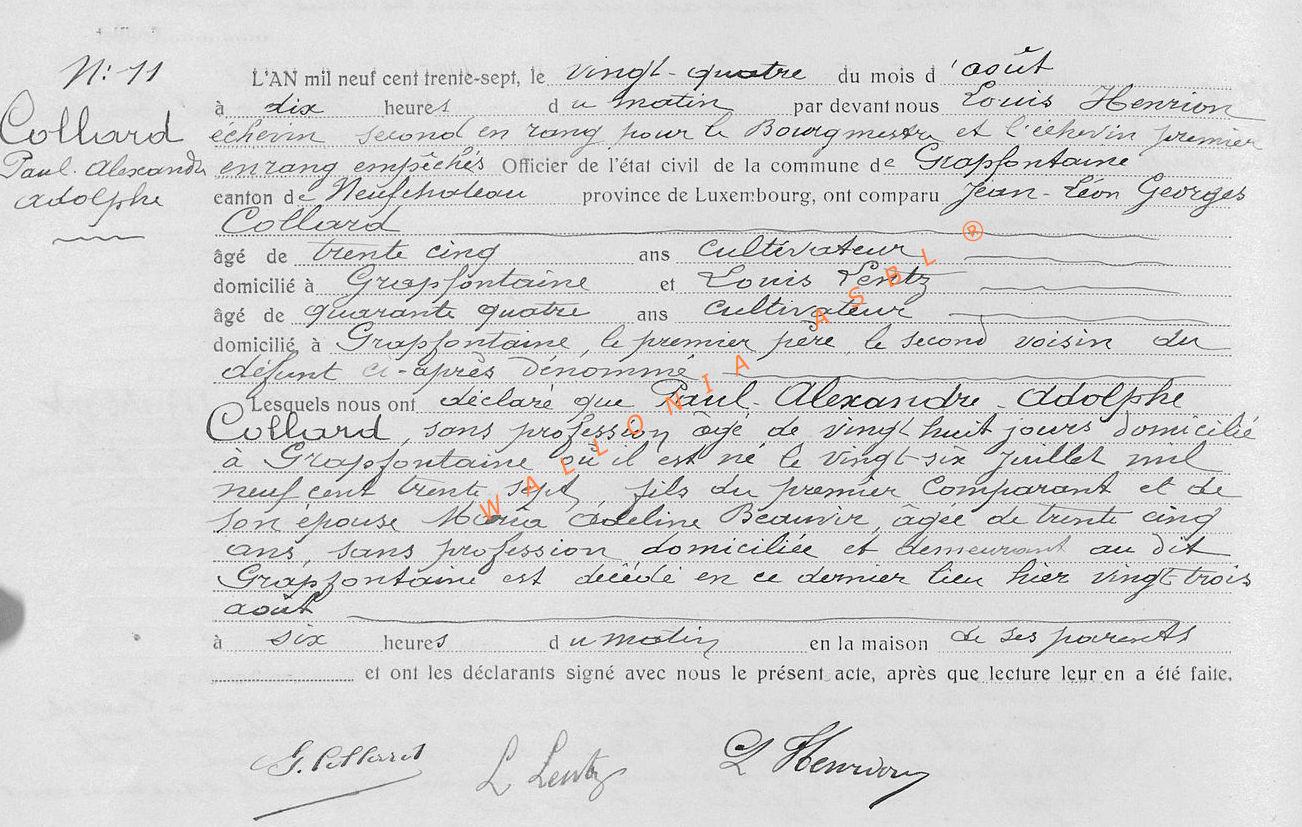 N: 11
Collard
Paul. Alexandre
Adolphe
L'AN mil neuf cent trente-sept, le vingt-quatre du mois d'août
à dix heures du matin par devant nous Louis Henrion
échevin second en rang pour le Bourgmestre et l'échevin premier
en rang empêchés Officier de l'état civil de la commune de Grapfontaine
canton de Neufchateau province de Luxembourg, ont comparu Jean-Léon Georges
Collard
âgé de trente cinq ans cultivateur
domicilié à Grapfontaine et Louis Lentz
âgé de quarante quatre ans cultivateur
domicilié à Grapfontaine, le premier père, le second voisin du
défunt ci-après dénommé
Lesquels nous ont déclaré que Paul-Alexandre-Adolphe
Collard, sans profession âgé de vingt huit jours domicilié
à Grapfontaine où il est né le vingt-six juillet mil
neuf cent trente sept, fils du premier comparant et de
son épouse Maria Adeline Beauvir, âgée de trente cinq
ans, sans profession domiciliée et demeurant au dit
Grapfontaine est décédé en ce dernier lieu hier vingt trois
août
à six heures du matin en la maison de ses parents
et ont les déclarants signé avec nous le présent acte, après que lecture leur en a été faite.
G. Collard L Lentz L Henrion
WALLONIA ASBL ®